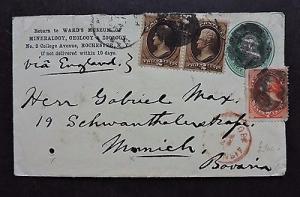 Return to WARD'S MUSEUM OF
MINERALOGY, GEOLOGY & ZOOLOGY,
No. 2 College Avenue, ROCHESTER, N.Y.
If not delivered within 10 days.
via England.
Herr Gabriel Max,
19 Schwanthalerstraße.
Munich,
Bavaria